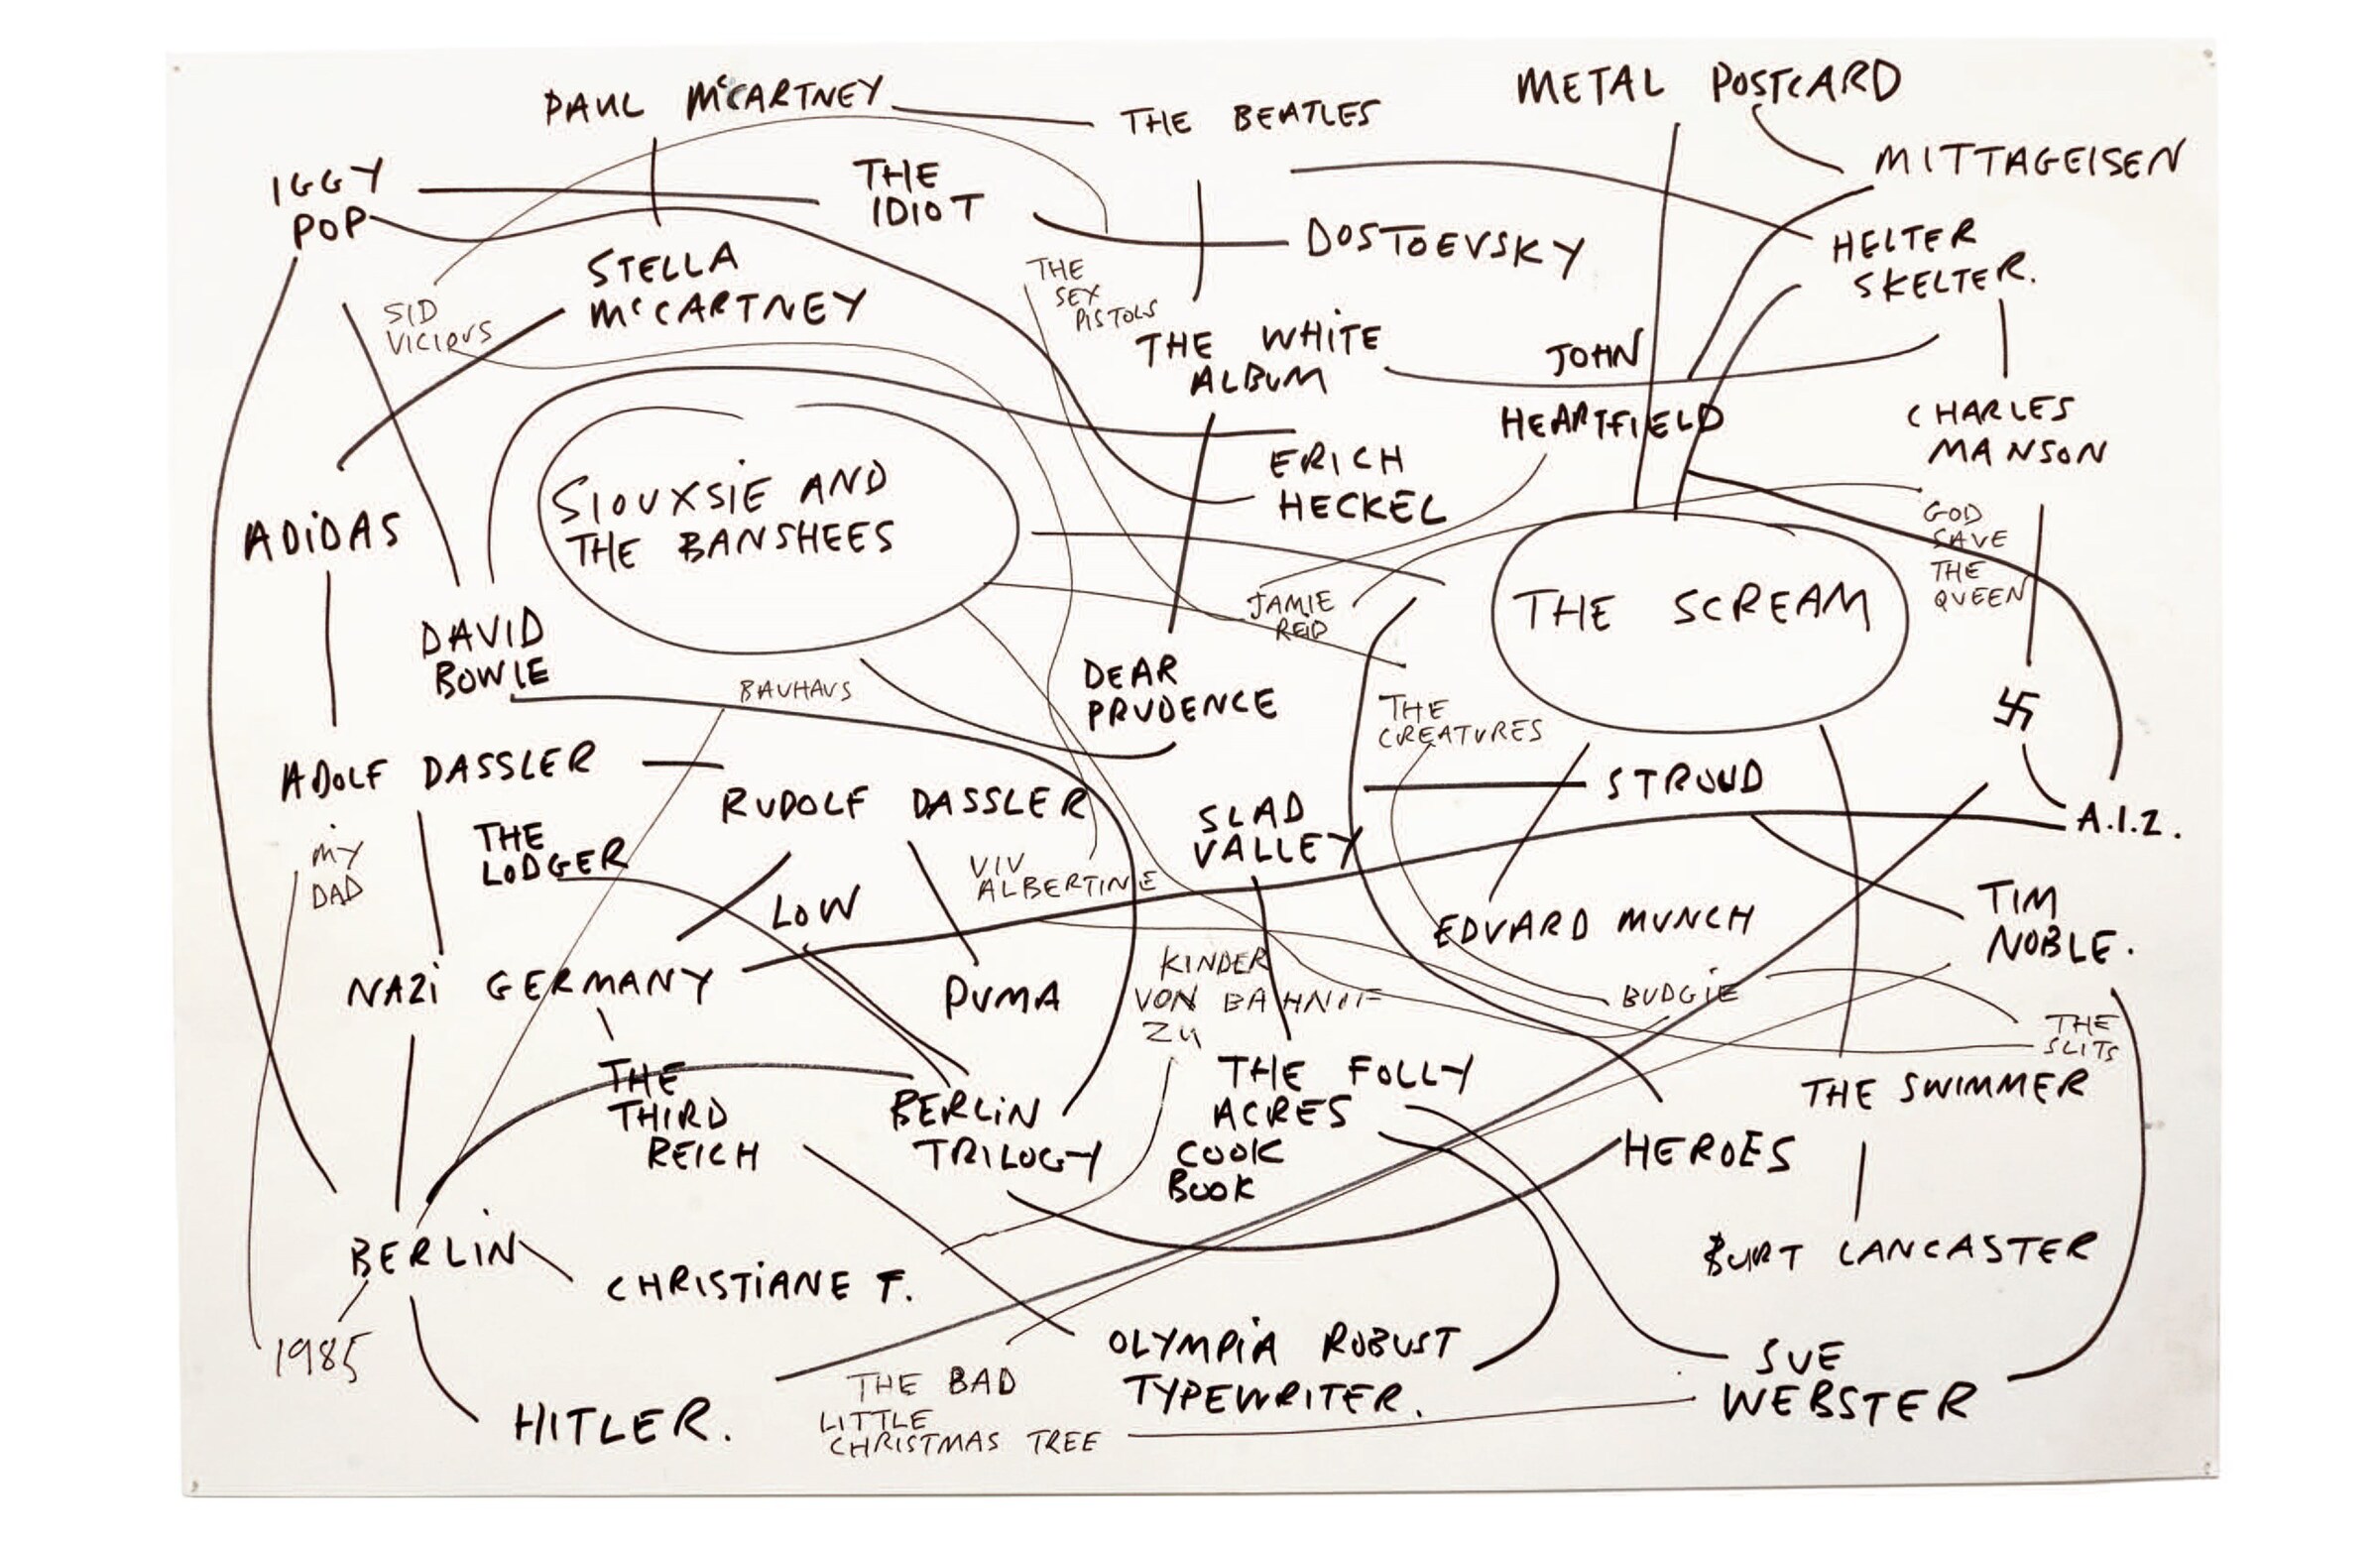 PAUL McCARTNEY
THE BEATLES
METAL POSTCARD
MITTAGEISEN
IGGY
POP
THE
IDIOT
DOSTOEVSKY
HELTER
SKELTER.
STELLA
McCARTNEY
SID
VICIOUS
THE
SEX
PISTOLS
THE WHITE
ALBUM
JOHN
HEARTFIELD
CHARLES
MANSON
ERICH
HECKEL
SIOUXSIE AND
THE BANSHEES
ADIDAS
GOD
SAVE
THE
QUEEN
JAMIE
REID
THE SCREAM
DAVID
BOWIE
BAUHAUS
DEAR
PRUDENCE
THE
CREATURES
卐
ADOLF DASSLER
RUDOLF DASSLER
SLAD
VALLEY
STROUD
A.I.Z.
MY
DAD
THE
LODGER
VIV
ALBERTINE
LOW
EDVARD MUNCH
TIM
NOBLE.
NAZI GERMANY
PUMA
KINDER
VON BAHNOF
ZU
BUDGIE
THE
SLITS
THE
THIRD
REICH
BERLIN
TRILOGY
THE FOLLY
ACRES
COOK
BOOK
THE SWIMMER
HEROES
BERLIN
CHRISTIANE F.
BURT LANCASTER
1985
HITLER.
THE BAD
LITTLE
CHRISTMAS TREE
OLYMPIA ROBUST
TYPEWRITER.
SUE
WEBSTER